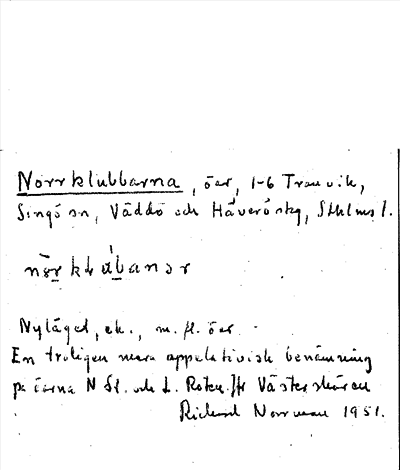 Norrklubbarna, öar, 1-6 Tranvik,
Singö sn, Väddö och Häverö skg, Sthlms l.
Nylåget, ek., m. fl. öar
En troligen mera appelativisk benämning
på öarna N St. och L. Roten, Väster
Rickard Norrman 1951.